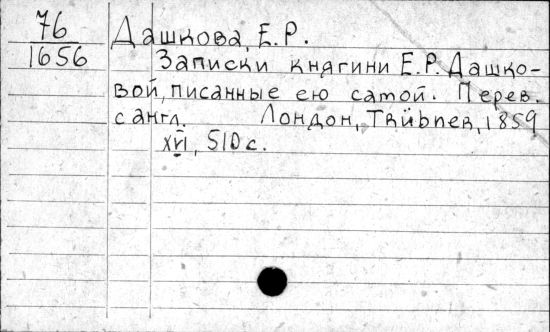 76
1656
Дашкова, Е.Р.
Записки княгини Е.Р. Дашко-
вой, писанные ею самой. Перев.
с англ. Лондон, Trübner, 1859
XVI, 510 с.